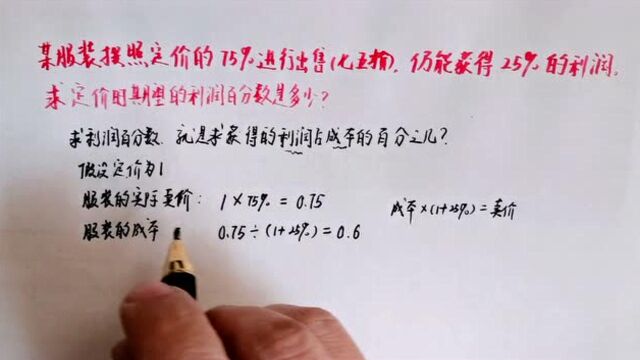 某服装按照定价的75%进行出售(七五折),仍能获得25%的利润。
求定价时期望的利润百分数是多少?
求利润百分数,就是求获得的利润占成本的百分之几?
假设定价为1
服装的实际卖价: 1×75%=0.75
成本×(1+25%)=卖价
服装的成本 0.75÷(1+25%)=0.6